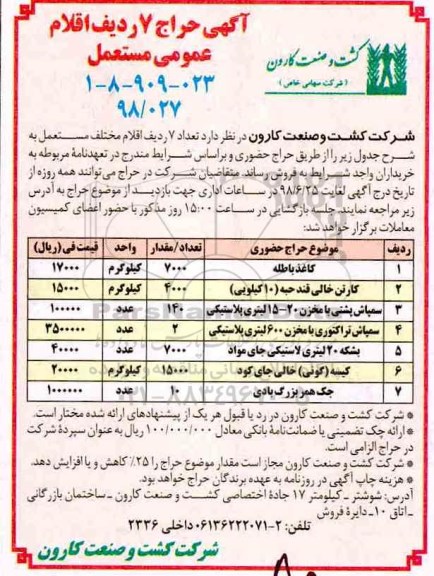 آگهی حراج ۷ ردیف اقلام
عمومی مستعمل
۱-۸-۹۰۹-۰۲۳
۹۸/۰۲۷
کشت و صنعت کارون
(شرکت سهامی خاص)
شرکت کشت و صنعت کارون در نظر دارد تعداد ۷ ردیف اقلام مختلف مستعمل به
شرح جدول زیر را از طریق حراج حضوری و براساس شرایط مندرج در تعهدنامهٔ مربوطه به
خریداران واجد شرایط به فروش رساند. متقاضیان شرکت در حراج می‌توانند همه روزه از
تاریخ درج آگهی لغایت ۹۸/۶/۲۵ در ساعات اداری جهت بازدید از موضوع حراج به آدرس
زیر مراجعه نمایند. جلسه بازگشایی در ساعت ۱۵:۰۰ روز مذکور با حضور اعضای کمیسیون
معاملات برگزار خواهد شد:
ردیف موضوع حراج حضوری تعداد/مقدار واحد قیمت فی (ریال)
۱ کاغذ باطله ۷۰۰۰ کیلوگرم ۱۷۰۰۰
۲ کارتن خالی قند حبه (۱۰ کیلویی) ۴۰۰۰ کیلوگرم ۱۵۰۰۰
۳ سمپاش پشتی با مخزن ۲۰-۱۵ لیتری پلاستیکی ۱۴۰ عدد ۱۰۰۰۰۰
۴ سمپاش تراکتوری با مخزن ۶۰۰ لیتری پلاستیکی ۲ عدد ۳۵۰۰۰۰۰
۵ بشکه ۲۰ لیتری لاستیکی جای مواد ۷۰۰۰ عدد ۴۰۰۰۰
۶ کیسه (گونی) خالی جای کود ۱۵۰۰۰ کیلوگرم ۲۰۰۰۰
۷ جک همر بزرگ بادی ۱۰ عدد ۱۰۰۰۰۰۰
* شرکت کشت و صنعت کارون در رد یا قبول هر یک از پیشنهادهای ارائه شده مختار است.
* ارائه چک تضمینی یا ضمانت‌نامهٔ بانکی معادل ۱۰۰/۰۰۰/۰۰۰ ریال به عنوان سپردهٔ شرکت
در حراج الزامی است.
* شرکت کشت و صنعت کارون مجاز است مقدار موضوع حراج را ۲۵٪ کاهش و یا افزایش دهد.
* هزینه چاپ آگهی در روزنامه به عهده برندگان حراج خواهد بود.
آدرس: شوشتر ـ کیلومتر ۱۷ جادهٔ اختصاصی کشت و صنعت کارون ـ ساختمان بازرگانی
ـ اتاق ۱۰ـ دایرهٔ فروش
تلفن: ۲-۰۶۱۳۶۲۲۲۰۷۱ داخلی ۲۳۳۶
شرکت کشت و صنعت کارون